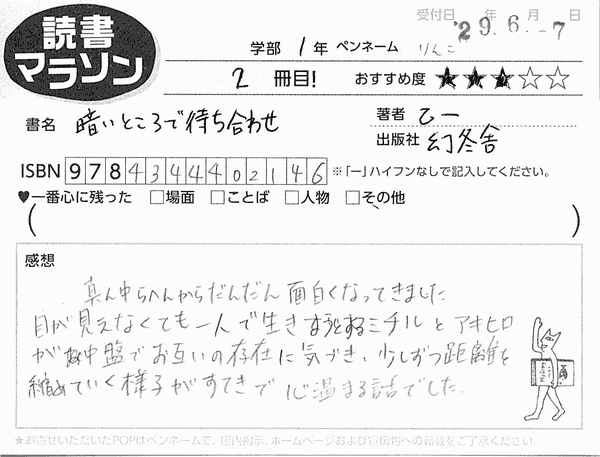 読書マラソン
受付日 29年 6.月 -7日
学部 1年 ペンネーム りんご
2 冊目! おすすめ度 ★★★☆☆
書名 暗いところで待ち合わせ
著者 乙一
出版社 幻冬舎
ISBN 9784344402146 ※「ー」ハイフンなしで記入してください。
♥一番心に残った □場面 □ことば □人物 □その他
( )
感想
真ん中らへんからだんだん面白くなってきました
目が見えなくても一人で生きようとするミチルとアキヒロ
が中盤でお互いの存在に気づき、少しずつ距離を
縮めていく様子がすてきで心温まる話でした。
★お寄せいただいたPOPはペンネームで、店内掲示、ホームページおよび宣伝物への転載をご了承ください。